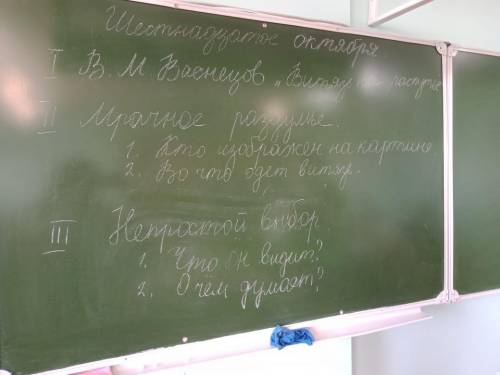 Шестнадцатое октября
I В. М. Васнецов „Витязь на распутье
II Мрачное раздумье.
1. Кто изображен на картине
2. Во что одет витязь.
III Непростой выбор.
1. Что он видит?
2. О чем думает?